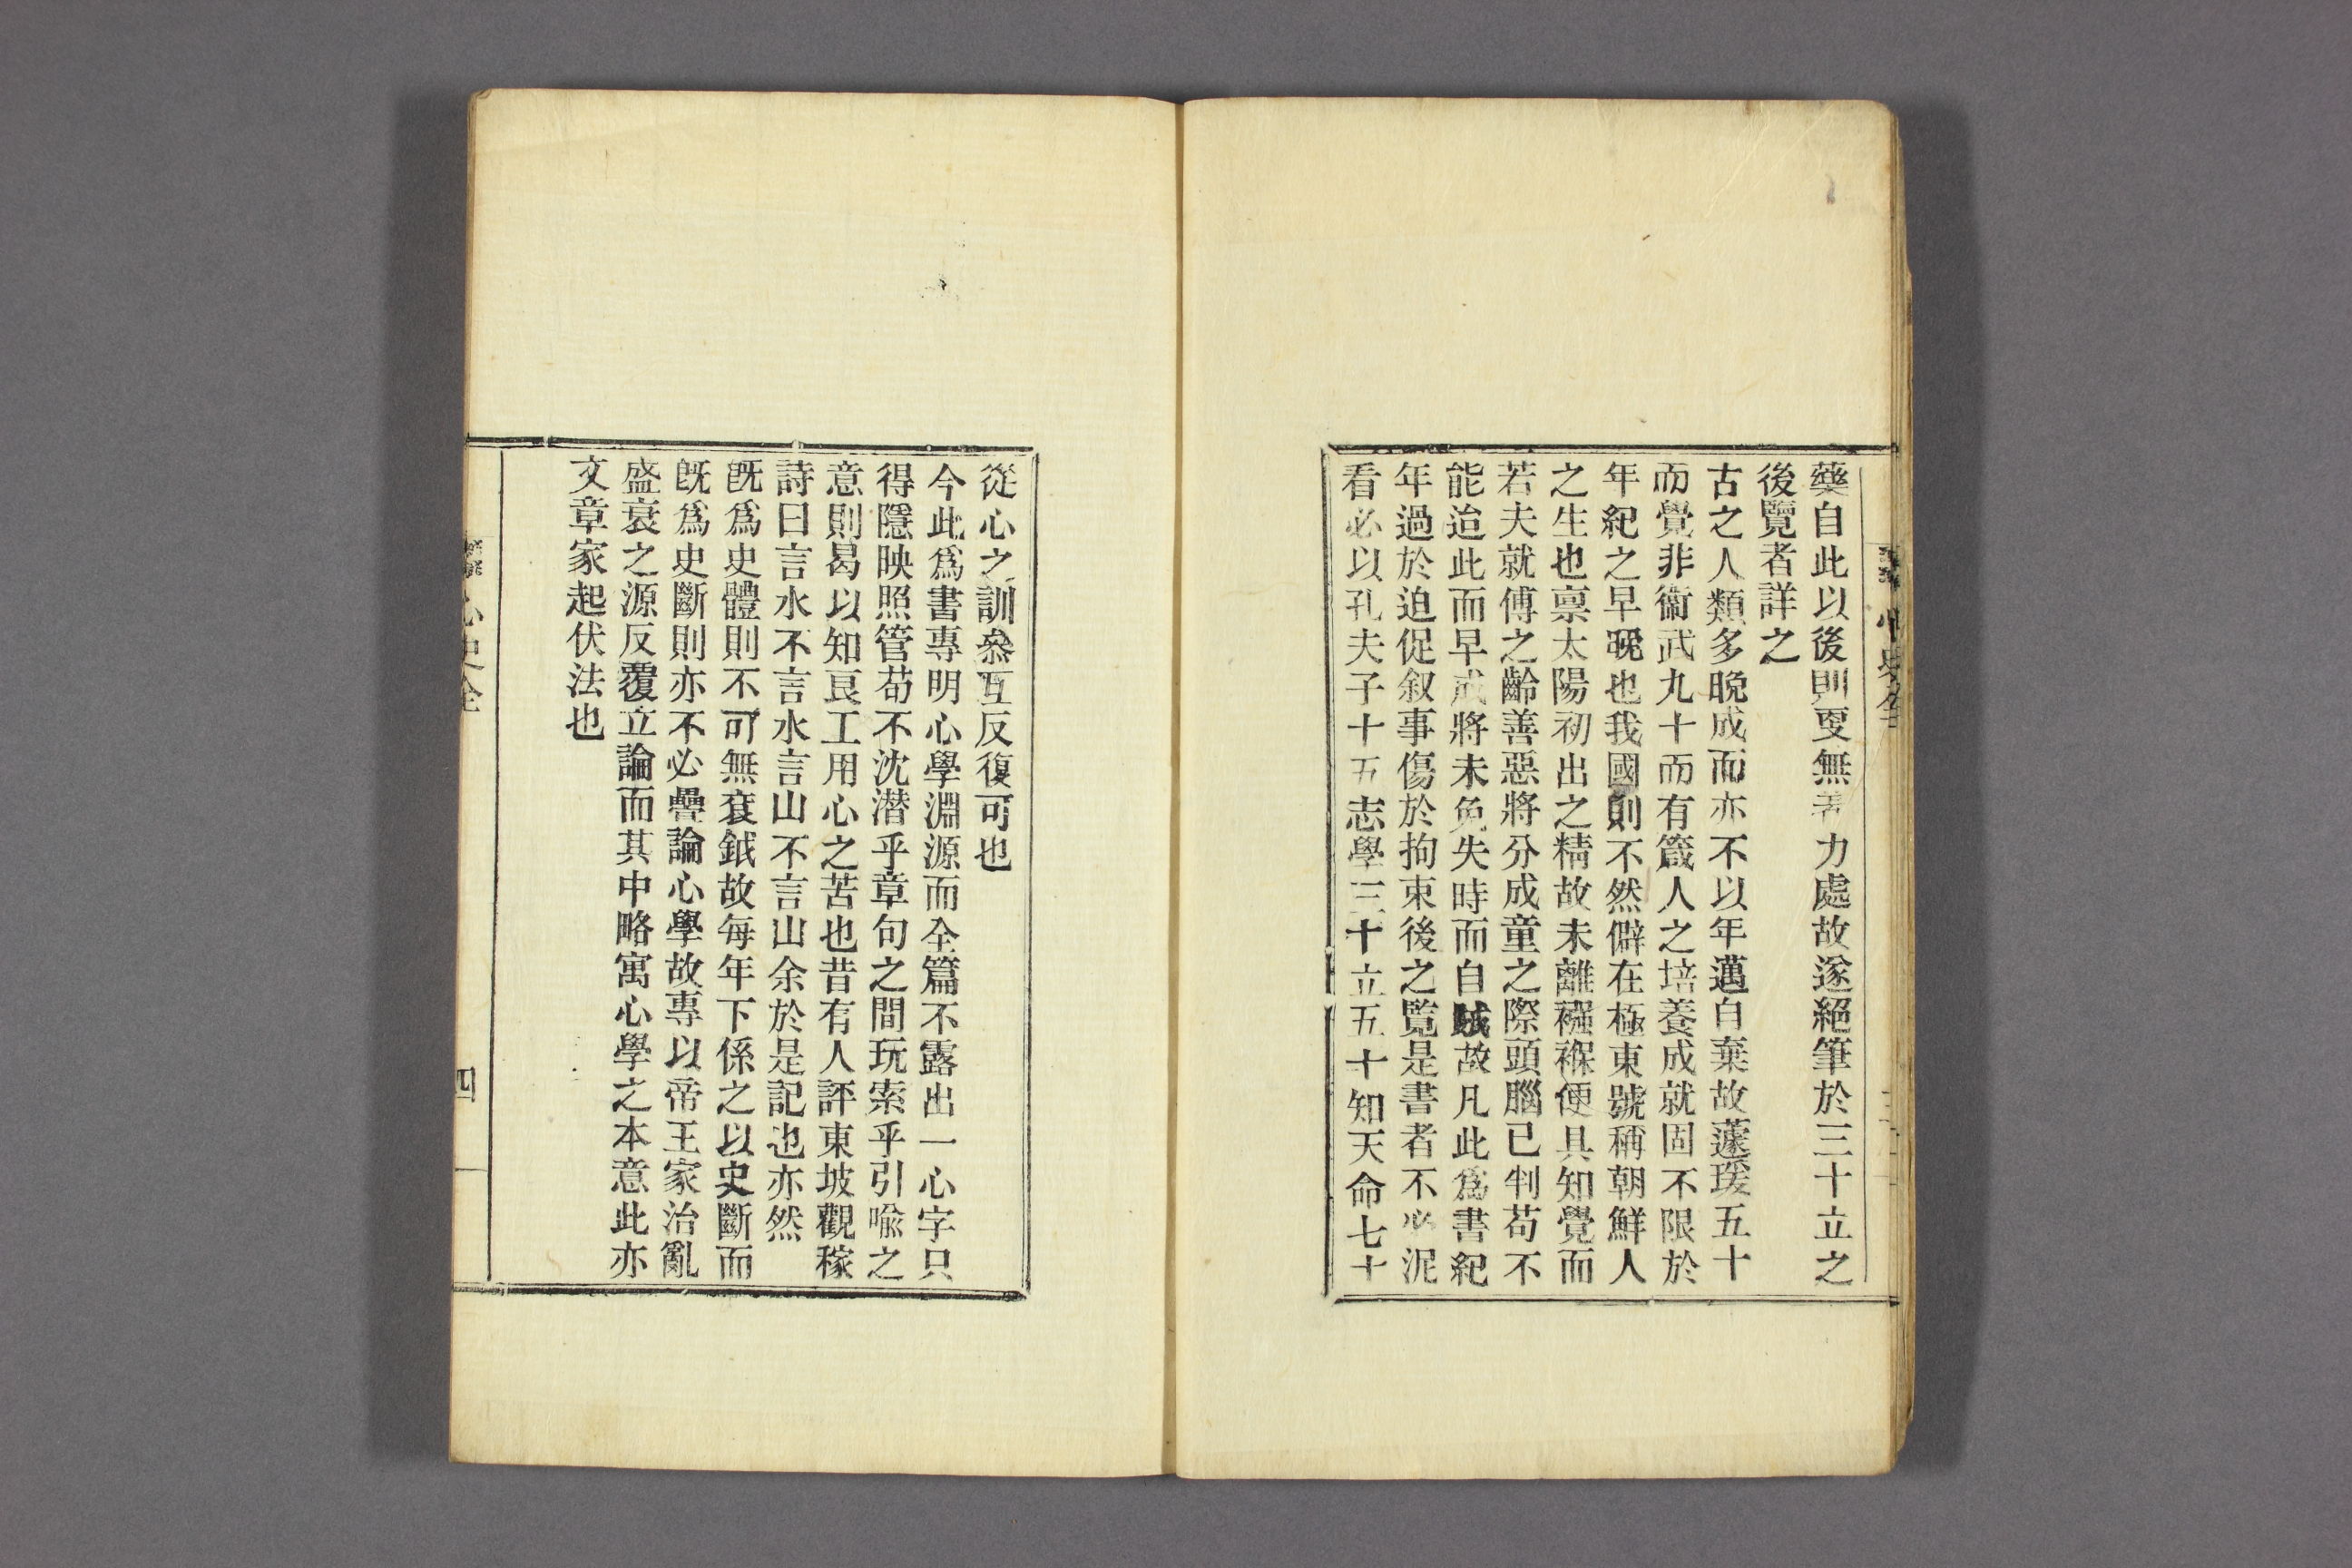 藥自此以後則更無著力處故遂絕筆於三十立之
後覽者詳之
古之人類多晩成而亦不以年邁自棄故蘧瑗五十
而覺非衞武九十而有箴人之培養成就固不限於
年紀之早晩也我國則不然僻在極東號稱朝鮮人
之生也禀太陽初出之精故未離襁褓便具知覺而
若夫就傅之齡善惡將分成童之際頭腦已判苟不
能迨此而早戒將未免失時而自賊故凡此爲書紀
年過於迫促叙事傷於拘束後之覽是書者不必泥
看必以孔夫子十五志學三十立五十知天命七十
從心之訓叅互反復可也
今此爲書專明心學淵源而全篇不露出一心字只
得隱映照管苟不沈潜乎章句之間玩索乎引喩之
意則曷以知良工用心之苦也昔有人評東坡觀稼
詩曰言水不言水言山不言山余於是記也亦然
旣爲史體則不可無袞鉞故每年下係之以史斷而
旣爲史斷則亦不必疊論心學故專以帝王家治亂
盛衰之源反覆立論而其中略寓心學之本意此亦
文章家起伏法也
心史全
四